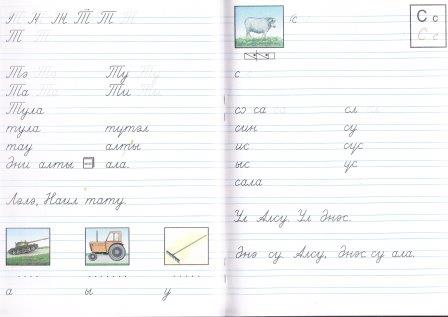 Т Т
Т Т
Тә Тә Ту Ту
Та Та Ти Ти
Тула
тула түтәл
тау алты
Әни алты ала.
Ләлә, Наил тату.
а ы у
С с
С с
с
сә са са
син су
ис сүс
ыс ус
сала
Ул Алсу. Ул Әнәс.
Әнә су. Алсу, Әнәс су ала.